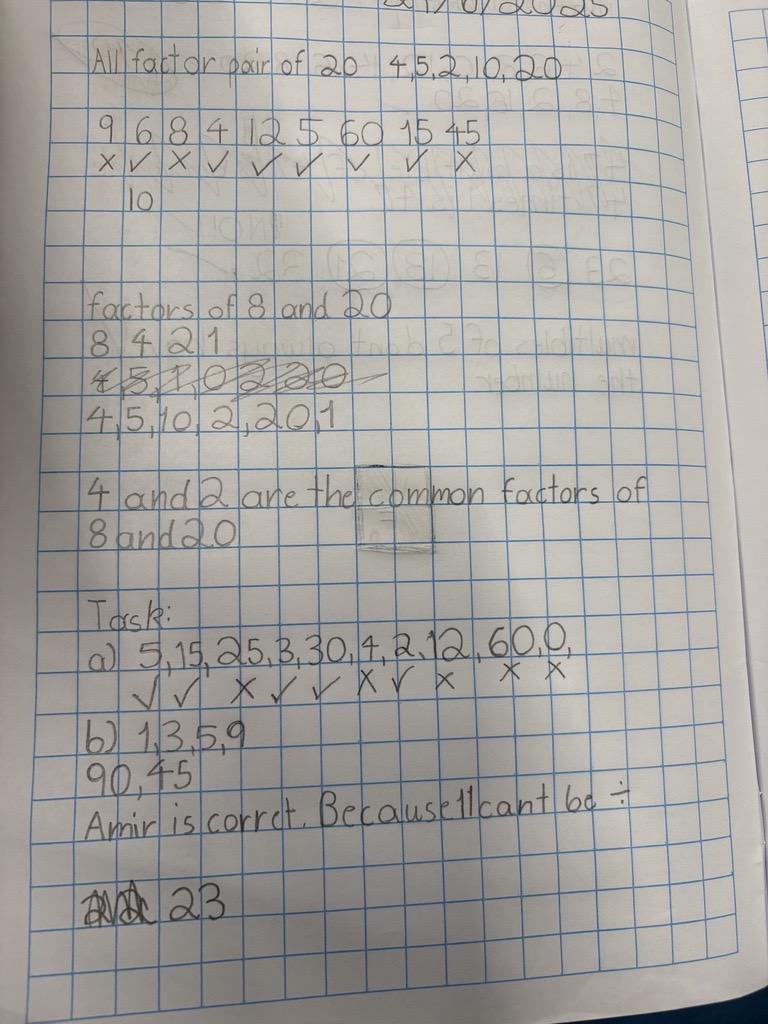 All factor pair of 20 4,5,2,10,20
9 6 8 4 12 5 60 15 45
x ✓ x ✓ ✓ ✓ ✓ ✓ x
10
factors of 8 and 20
8 4 2 1
4,5,10,2,20,1
4 and 2 are the common factors of
8 and 20
Task:
a) 5,15,25,3,30,4,2,12,60,0,
✓ ✓ x ✓ ✓ x ✓ x x x
b) 1,3,5,9
90,45
Amir is corrct. Because 11 cant be ÷
23